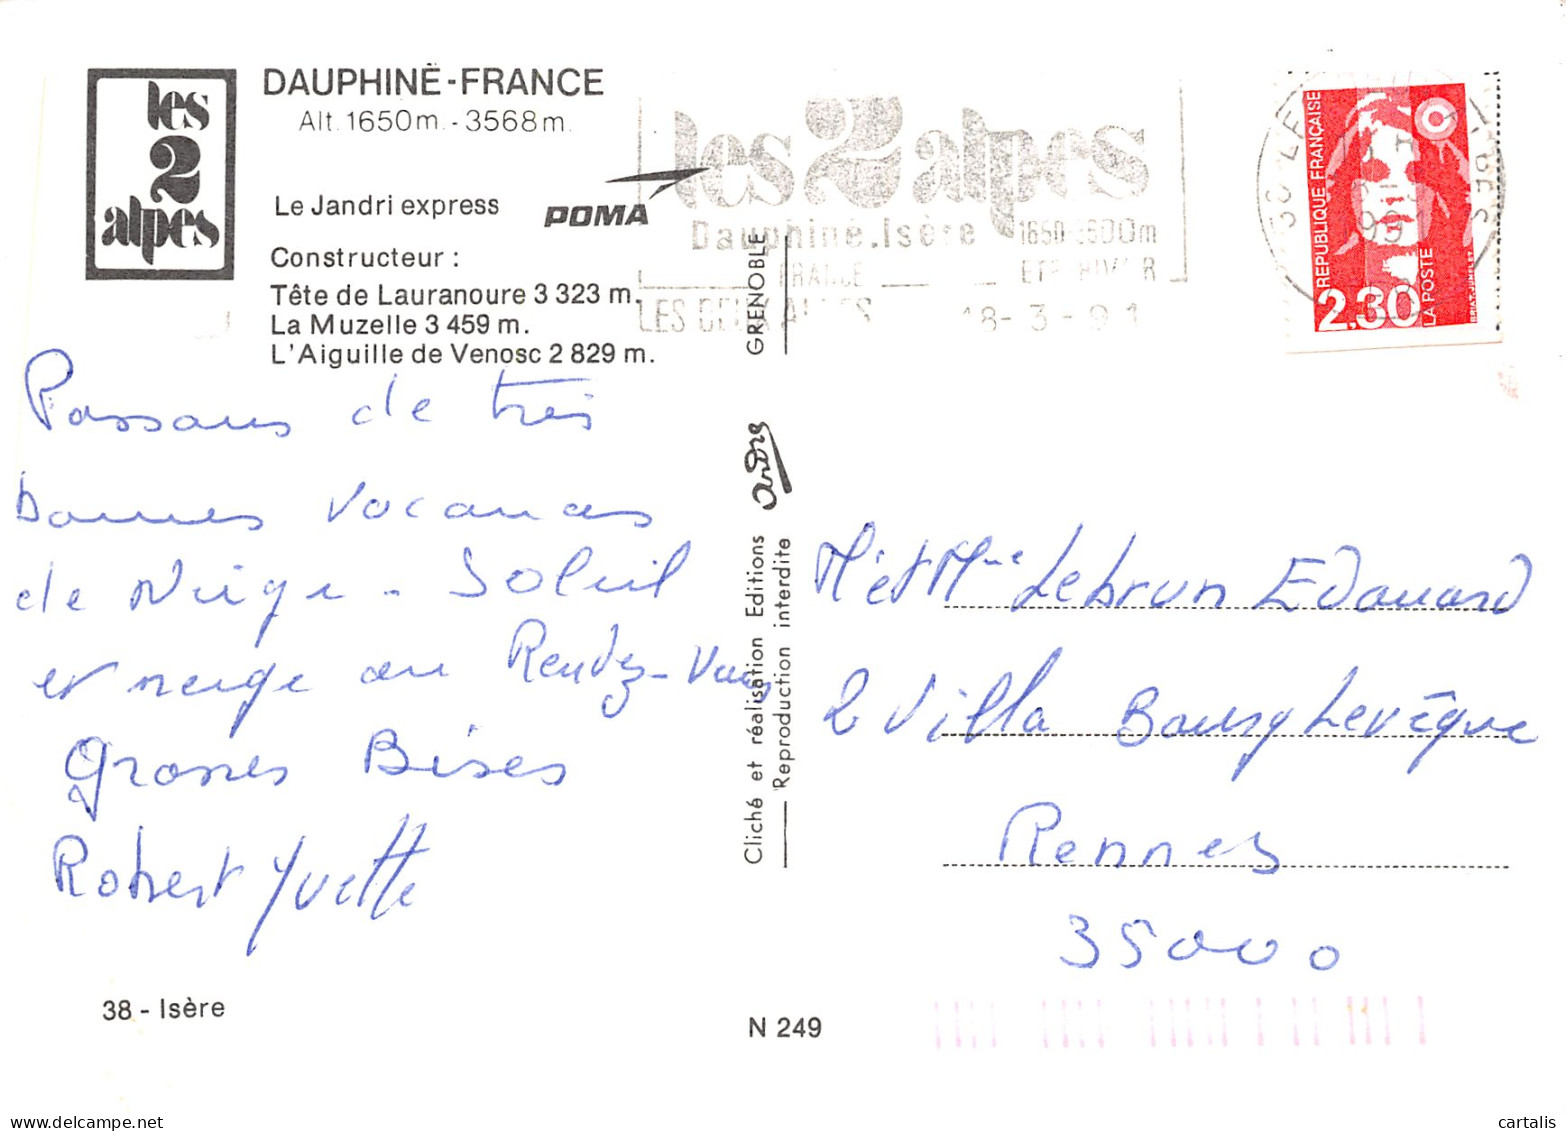 les
2
alpes
DAUPHINÉ-FRANCE
Alt. 1650m. - 3568m.
Le Jandri express
POMA
Constructeur :
Tête de Lauranoure 3 323 m.
La Muzelle 3 459 m.
L'Aiguille de Venosc 2 829 m.
les 2 alpes
Dauphiné.Isère
FRANCE
LES DEUX ALPES 18-3-91
REPUBLIQUE FRANÇAISE
2,30
LA POSTE
Passons de très
bonnes vacances
de Neige - Soleil
et neige au Rendez-Vous
Grosses Bises
Robert Yvette
GRENOBLE
André
Cliché et réalisation Editions
Reproduction interdite
Mr et Mme Lebrun Edouard
2 Villa Bourg Levêque
Rennes
35000
38 - Isère
N 249
cartes-postales.delcampe.net
cartalis